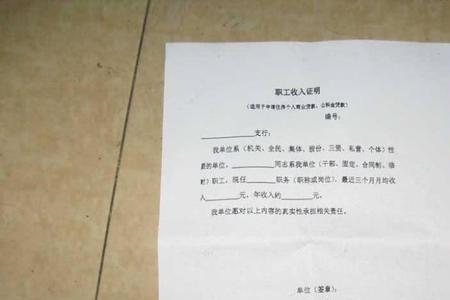 职工收入证明
（适用于申请住房个人商业贷款、公积金贷款）
编号：
____________支行：
我单位系（机关、全民、集体、股份、三资、私营、个体）性
质的单位，________同志系我单位（干部、固定、合同制、临
时）职工，现任______职务（职称或岗位），最近三个月月均收
入______元，年收入约______元。
我单位愿对以上内容的真实性承担相关责任。
单位（签章）：